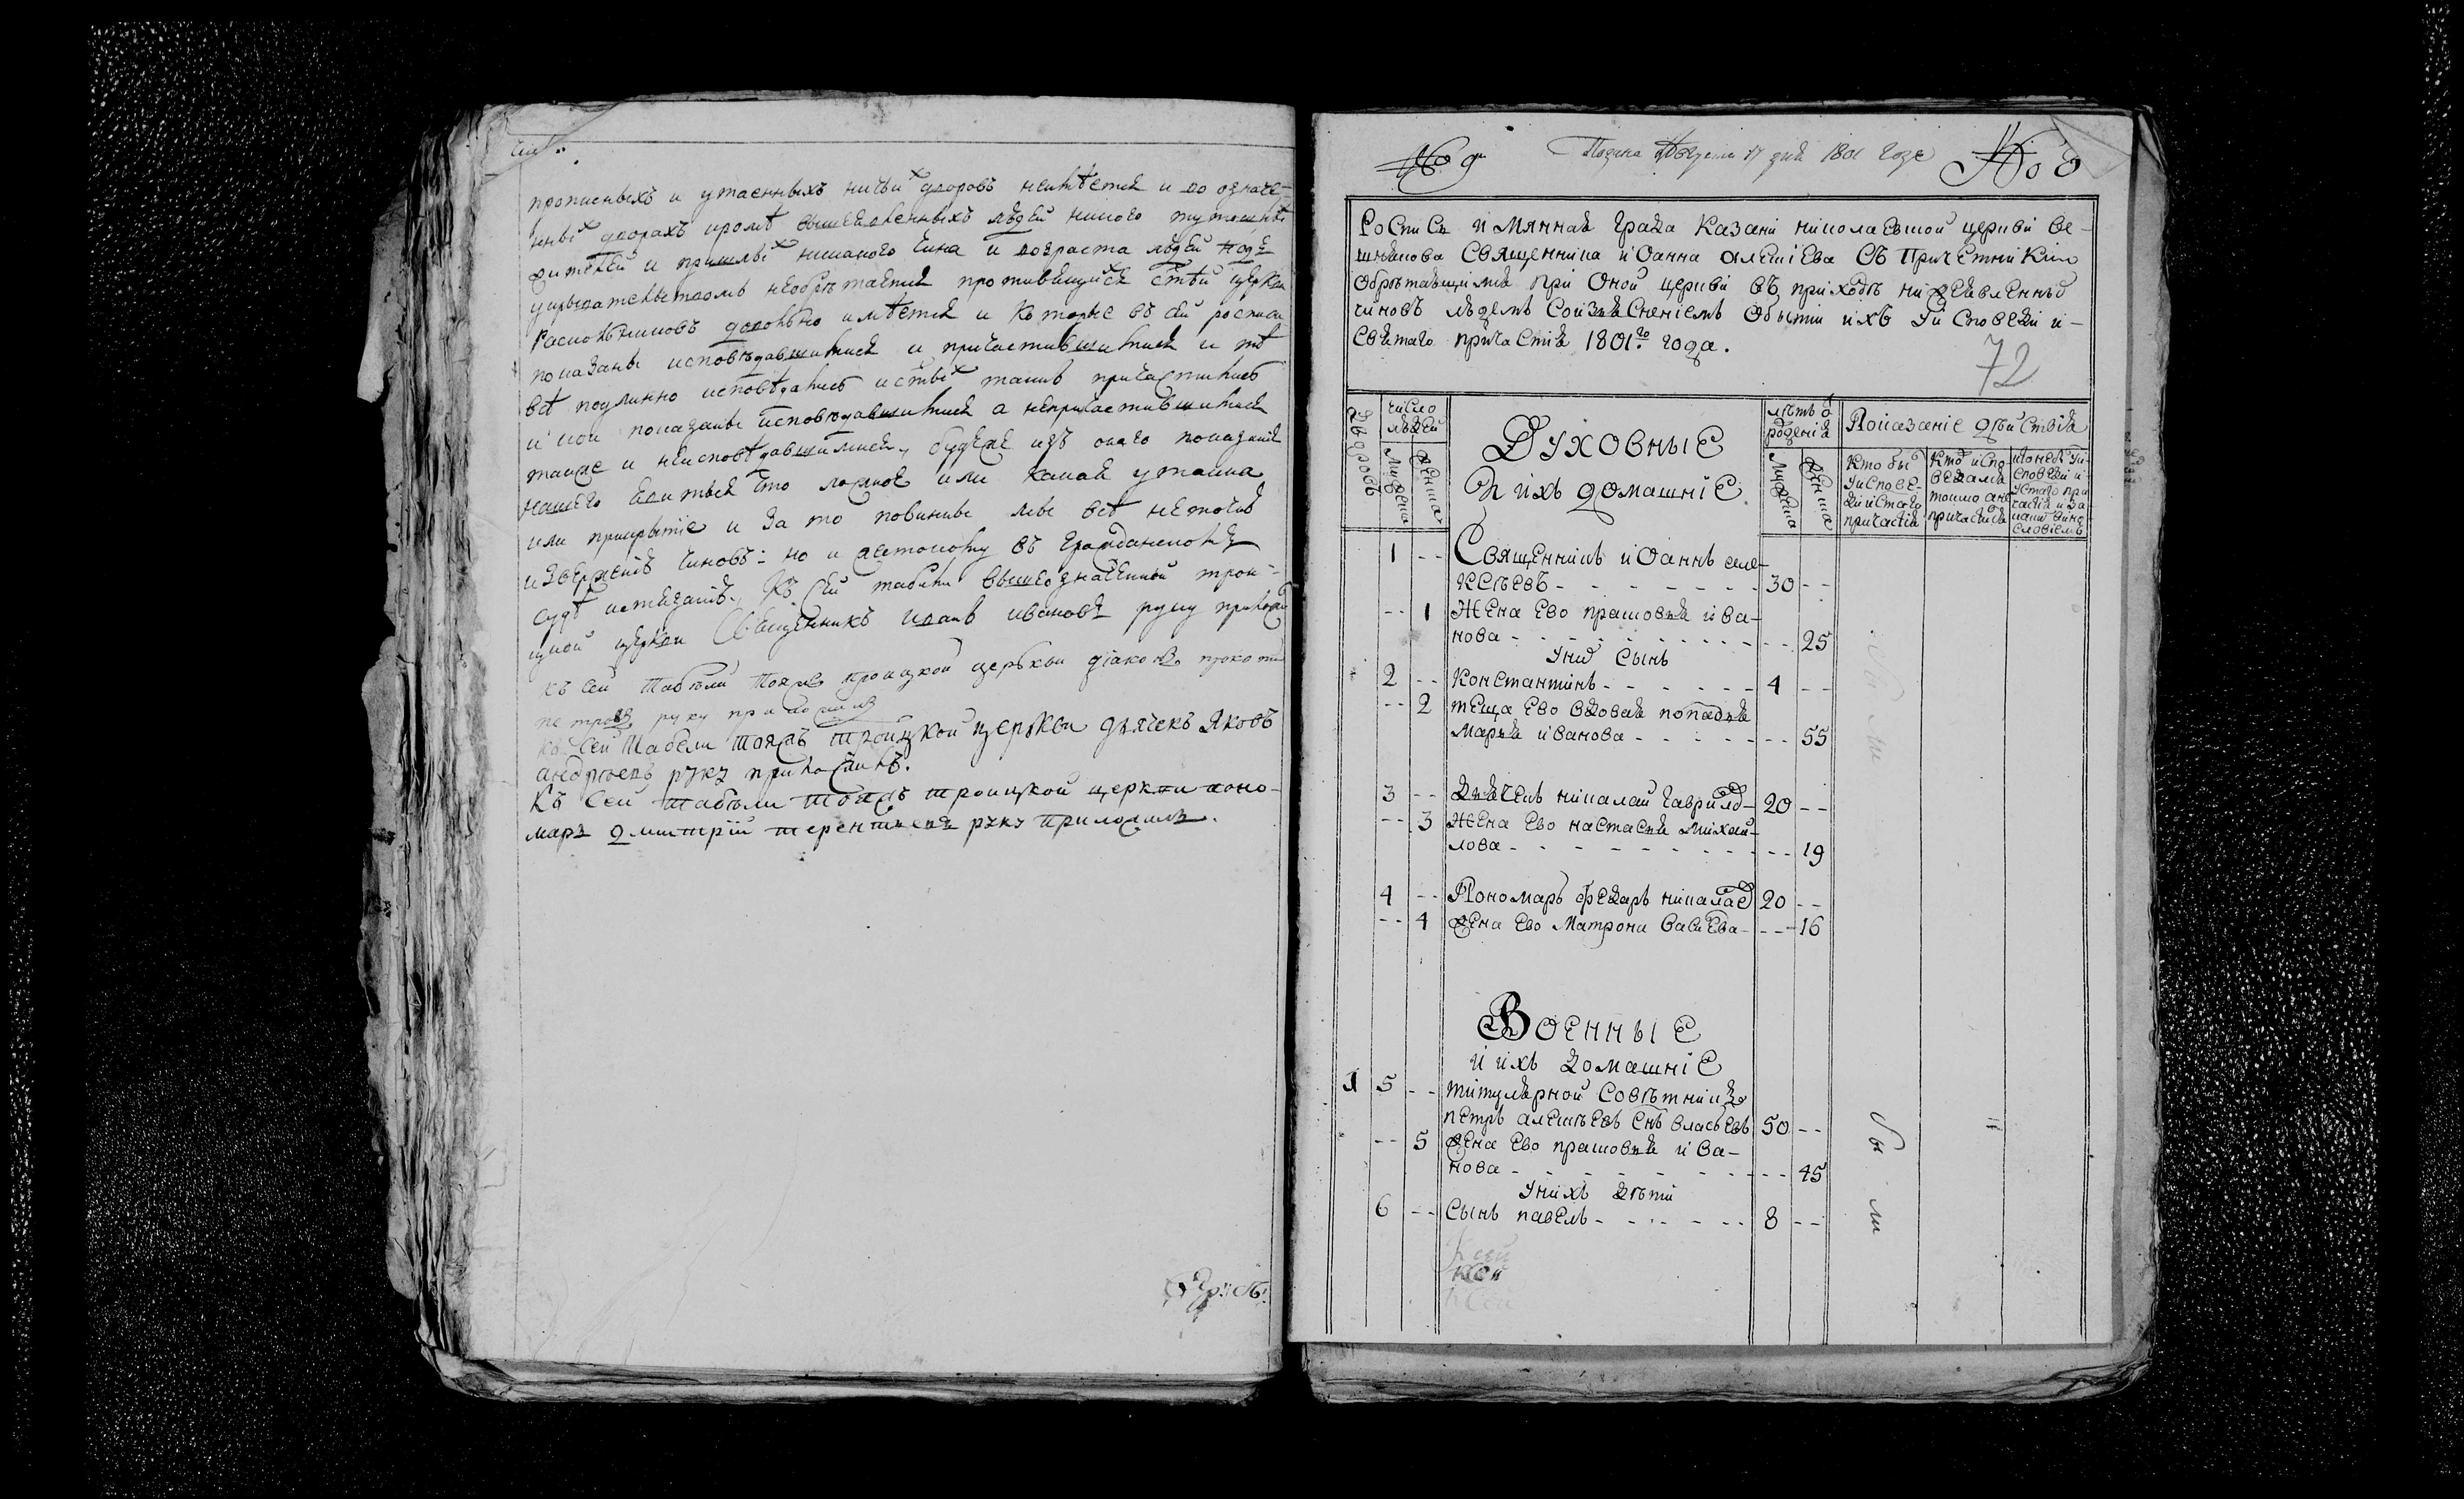 прописныхъ и утаенныхъ ничьихъ дворовъ неимѣется и во означе-
нныхъ дворахъ кромѣ вышеявленныхъ людей никого тутошнихъ
жителей и пришлыхъ никакого чина и возраста людей подъ
укрывательствомъ необрѣтается противящихся стѣй церкви
раскольниковъ довольно имѣется и которые въ сей росписи
показаны исповѣдавшимися и причастившимися и тѣ
всѣ подлинно исповѣдались и стыхъ таинъ причастились
и кои показаны исповѣдавшимися а непричастившимися
также и неисповѣдавшимися, будеже изъ онаго показания
нашего явиться что ложное или какая утайка
или прикрытіе и за то повинны мы всѣ неточию
извержениѣ чиновъ: но и жестокому въ гражданскомъ
судѣ истязанию. Къ сей табели вышеозначенной трои-
цкой церкви Священникъ иванъ ивановъ руку приложи
къ сей табели тояжъ троицкой церькви діаконъ
петровъ руку приложилъ
къ сей табели тояжъ троицкой церкви дьячекъ Яковъ
андрѣевъ руку приложилъ.
Къ сей табѣли тояжъ троицкой церкви поно-
марь дмитрій терентьевъ руку приложилъ.
№ 9
Подана Августа 17 дня 1801 года
№ 8
Роспись имянная града Казани николаевской церкви ве-
шнякова Священника иоанна алексіева съ причетники
обрѣтающимся при оной церкви въ приходѣ нижеявленныхъ
чиновъ людемъ соизъясненіемъ о бытии ихъ у исповѣди и-
святаго причастія 1801го года.
72
число
людей
Мужеска
Женска
Духовныіе
И ихъ домашніе
лѣтъ о
рожденія
Мужеска
Женска
Показаніе дѣйствія
Кто былъ
у исповѣ-
ди и стаго
причастія
Кто испо-
ведался
токмо а не
причастился
1 -- Священникъ иоаннъ але-
ксѣевъ - - - - - - - 30 --
-- 1 Жена ево прасковья ива-
нова - - - - - - - - -- 25
у нихъ сынъ
2 -- Константинъ - - - - - - 4 --
-- 2 теща ево вдовая попадья
Марья иванова - - - - - -- 55
3 -- Дьячекъ николай гаврилов 20 --
-- 3 Жена ево настасья михай-
лова - - - - - - - - - -- 19
4 -- Пономарь федаръ николаев 20 --
-- 4 жена ево матрона васильева - -- 16
Военныіе
и ихъ домашніе
1 5 -- титулярной Совѣтникъ
петръ алексѣевъ снъ власьевъ 50 --
-- 5 жена ево прасковья ива-
нова - - - - - - - - -- 45
у нихъ дѣти
6 -- Сынъ павелъ - - - - - - 8 --
были